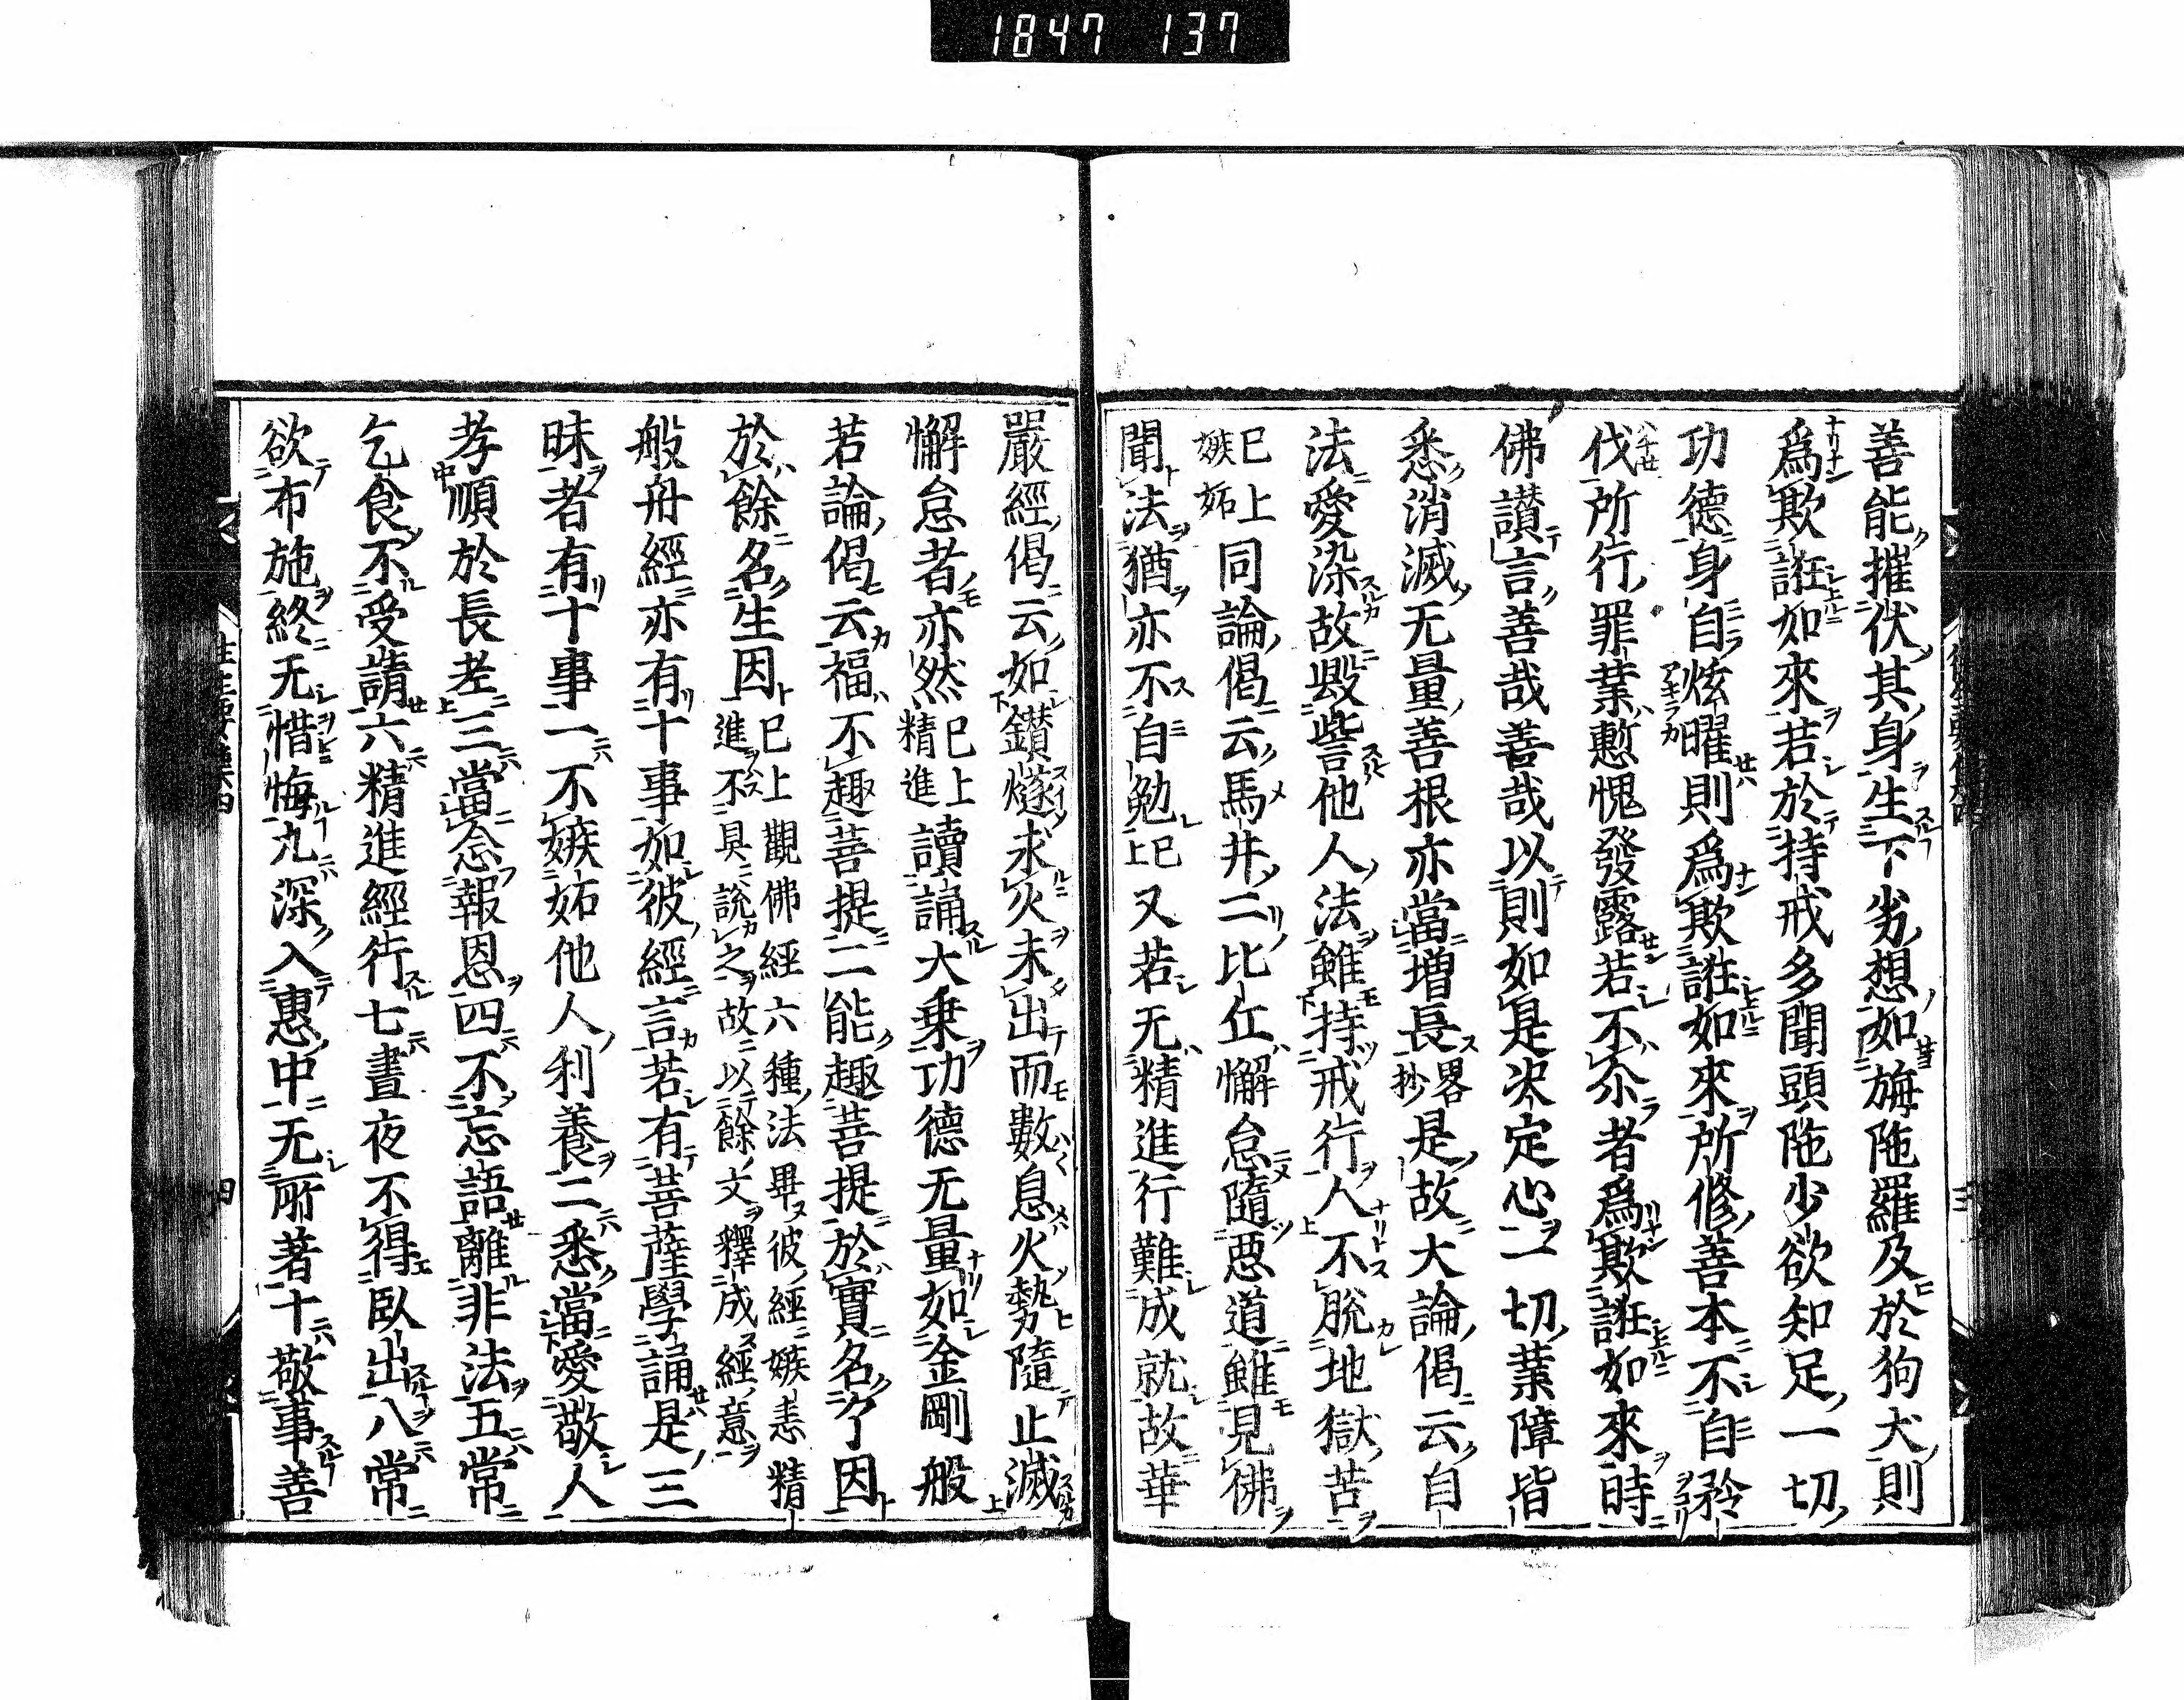 1847 137
善能摧伏其身生下劣想如旃陁羅及於狗犬則
爲欺誑如來若於持戒多聞頭陁少欲知足一切
功德身自炫曜則爲欺誑如來所修善本不自矜
伐所行罪業慙愧發露若不尒者爲欺誑如來時
佛讃言善哉善哉以則如是决定心一切業障皆
悉消滅无量善根亦當増長畧抄是故大論偈云自
法愛染故毀訾他人法雖持戒行人不脫地獄苦
已上嫉妬同論偈云馬井二比丘懈怠隨惡道雖見佛
聞法猶亦不自勉已上又若无精進行難成就故華
嚴經偈云如鑚燧求火未出而數息火勢隨止滅
懈怠者亦然已上精進讀誦大乗功德无量如金剛般
若論偈云福不趣菩提二能趣菩提於實名了因
於餘名生因已上觀佛經六種法畢彼經嫉恚精進不具說之故以餘文釋成經意
般舟經亦有十事如彼經言若有菩薩學誦是三
昧者有十事一不嫉妬他人利養二悉當愛敬人
孝順於長老三當念報恩四不忘語離非法五常
乞食不受請六精進經行七晝夜不得臥出八常
欲布施終无惜悔九深入惠中无所著十敬事善